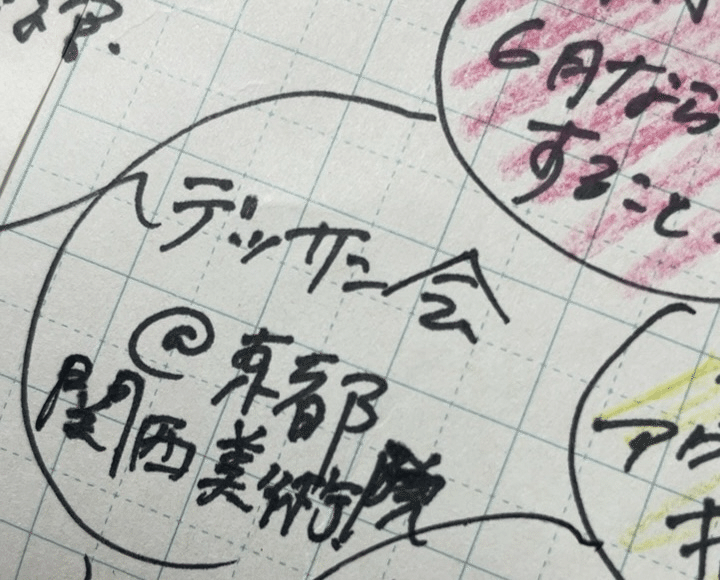 6月なら
すること
デッサン会
@京都
関西美術院